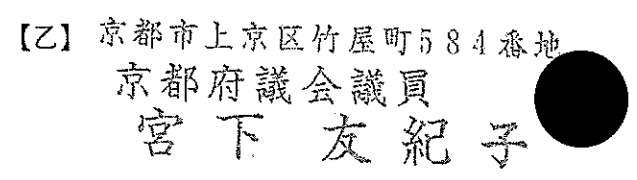 【乙】 京都市上京区竹屋町584番地
京都府議会議員
宮下 友紀子